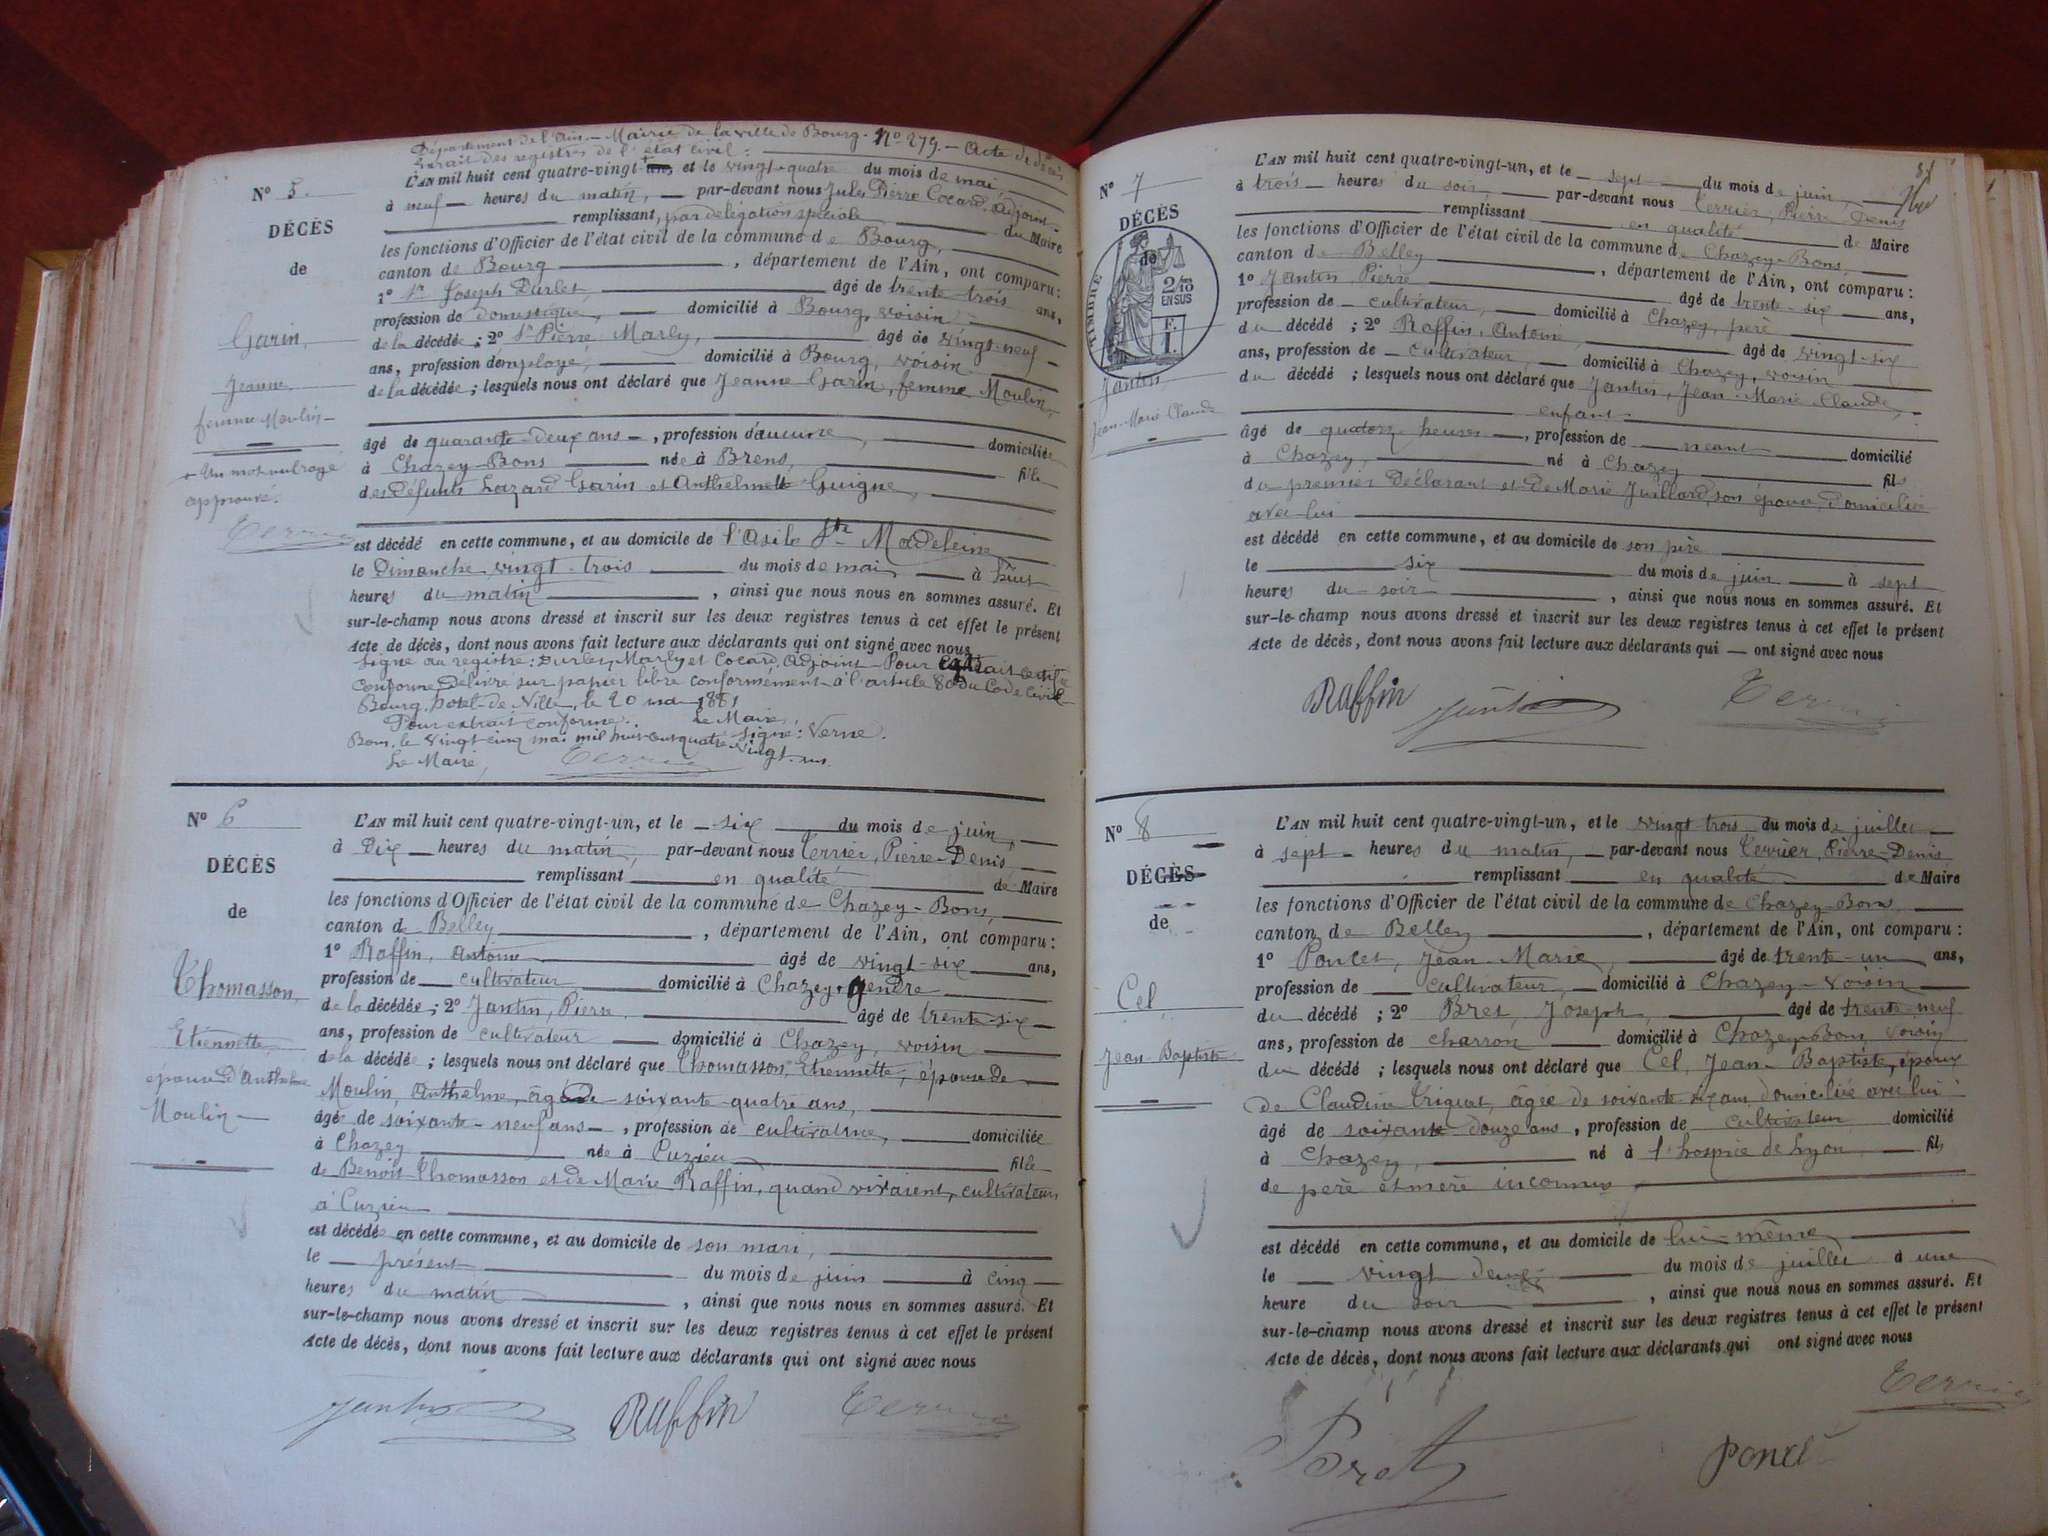 Département de l'Ain — Mairie de la ville de Bourg. N° 279. — Acte de décès
Extrait des registres de l'état civil :
N° 5.
DÉCÈS
de
Garin,
Jeanne,
femme Moulin —
+ Un mot surchargé
approuvé.
L'AN mil huit cent quatre-vingt et le vingt-quatre du mois de mai,
à neuf heures du matin, par-devant nous Jules Pierre Cocard, adjoint
remplissant, par délégation spéciale du Maire
les fonctions d'Officier de l'état civil de la commune de Bourg,
canton de Bourg, département de l'Ain, ont comparu :
1° Sr Joseph Durlet, âgé de trente-trois ans,
profession de domestique, domicilié à Bourg, voisin
de la décédée ; 2° Sr Pierre Marly, âgé de vingt-neuf
ans, profession d'employé, domicilié à Bourg, voisin
de la décédée ; lesquels nous ont déclaré que Jeanne Garin, femme Moulin,
âgé de quarante-deux ans, profession d'aucune, domiciliée
à Chazey-Bons née à Brens, fille
des défunts Lazard Garin et Anthelmette Guigne,
est décédé en cette commune, et au domicile de l'Asile Ste Madeleine
le Dimanche vingt-trois du mois de mai à huit
heures du matin, ainsi que nous nous en sommes assuré. Et
sur-le-champ nous avons dressé et inscrit sur les deux registres tenus à cet effet le présent
Acte de décès, dont nous avons fait lecture aux déclarants qui ont signé avec nous
Signé au registre : Durlet, Marly et Cocard, Adjoint — Pour extrait certifié
conforme Délivré sur papier libre conformément à l'article 80 du Code civil
Bourg, hotel-de-Ville, le 20 mai 1881
Pour extrait conforme : Le Maire,
Bons, le vingt-cinq mai mil huit cent quatre-vingt-un. Signé : Verne.
Le Maire,
Terrier
N° 6
DÉCÈS
de
Thomasson,
Etiennette,
épouse d'Anthelme
Moulin —
L'AN mil huit cent quatre-vingt-un, et le six du mois de juin,
à Dix heures du matin, par-devant nous Terrier, Pierre-Denis
remplissant en qualité de Maire
les fonctions d'Officier de l'état civil de la commune de Chazey-Bons,
canton de Belley, département de l'Ain, ont comparu :
1° Raffin, Antoine âgé de vingt-six ans,
profession de cultivateur domicilié à Chazey, gendre
de la décédée ; 2° Jantin, Pierre âgé de trente-six
ans, profession de cultivateur domicilié à Chazey, voisin
de la décédée ; lesquels nous ont déclaré que Thomasson, Etiennette, épouse de
Moulin, Anthelme, âgé de soixante-quatre ans,
âgé de soixante-neuf ans, profession de cultivatrice, domiciliée
à Chazey née à Cuzieu fille
de Benoit Thomasson et de Marie Raffin, quand vivaient, cultivateurs
à Cuzieu
est décédée en cette commune, et au domicile de son mari,
le présent du mois de juin à cinq
heures du matin, ainsi que nous nous en sommes assuré. Et
sur-le-champ nous avons dressé et inscrit sur les deux registres tenus à cet effet le présent
Acte de décès, dont nous avons fait lecture aux déclarants qui ont signé avec nous
Jantin Raffin Terrier
N° 7
DÉCÈS
de
TIMBRE
2/10
EN SUS
Jantin
Jean-Marie Claude
L'AN mil huit cent quatre-vingt-un, et le sept du mois de juin,
à trois heures du soir, par-devant nous Terrier, Pierre-Denis
remplissant en qualité de Maire
les fonctions d'Officier de l'état civil de la commune de Chazey-Bons,
canton de Belley, département de l'Ain, ont comparu :
1° Jantin, Pierre âgé de trente-six ans,
profession de cultivateur, domicilié à Chazey, père
du décédé ; 2° Raffin, Antoine, âgé de vingt-six
ans, profession de cultivateur, domicilié à Chazey, voisin
du décédé ; lesquels nous ont déclaré que Jantin, Jean-Marie Claude,
enfant
âgé de quatorze heures, profession de néant domicilié
à Chazey, né à Chazey fils
du premier Déclarant et de Marie Juillard, son épouse, domiciliée
avec lui
est décédé en cette commune, et au domicile de son père
le six du mois de juin à sept
heures du soir, ainsi que nous nous en sommes assuré. Et
sur-le-champ nous avons dressé et inscrit sur les deux registres tenus à cet effet le présent
Acte de décès, dont nous avons fait lecture aux déclarants qui — ont signé avec nous
Raffin Jantin Terrier
N° 8
DÉCÈS
de
Cel,
Jean-Baptiste
L'AN mil huit cent quatre-vingt-un, et le vingt trois du mois de juillet
à sept heures du matin, par-devant nous Terrier, Pierre-Denis
remplissant en qualité de Maire
les fonctions d'Officier de l'état civil de la commune de Chazey-Bons,
canton de Belley, département de l'Ain, ont comparu :
1° Poncet, Jean-Marie, âgé de trente-un ans,
profession de cultivateur, domicilié à Chazey-voisin
du décédé ; 2° Bret, Joseph, âgé de trente-neuf
ans, profession de charron domicilié à Chazey-Bons, voisin
du décédé ; lesquels nous ont déclaré que Cel, Jean-Baptiste, époux
de Claudine Triquet, âgée de soixante six ans domiciliée avec lui
âgé de soixante-douze ans, profession de cultivateur domicilié
à Chazey, né à l'hospice de Lyon, fils
de père et mère inconnus
est décédé en cette commune, et au domicile de lui-même
le vingt deux du mois de juillet à une
heure du soir, ainsi que nous nous en sommes assuré. Et
sur-le-champ nous avons dressé et inscrit sur les deux registres tenus à cet effet le présent
Acte de décès, dont nous avons fait lecture aux déclarants qui ont signé avec nous
Terrier
Bret Poncet